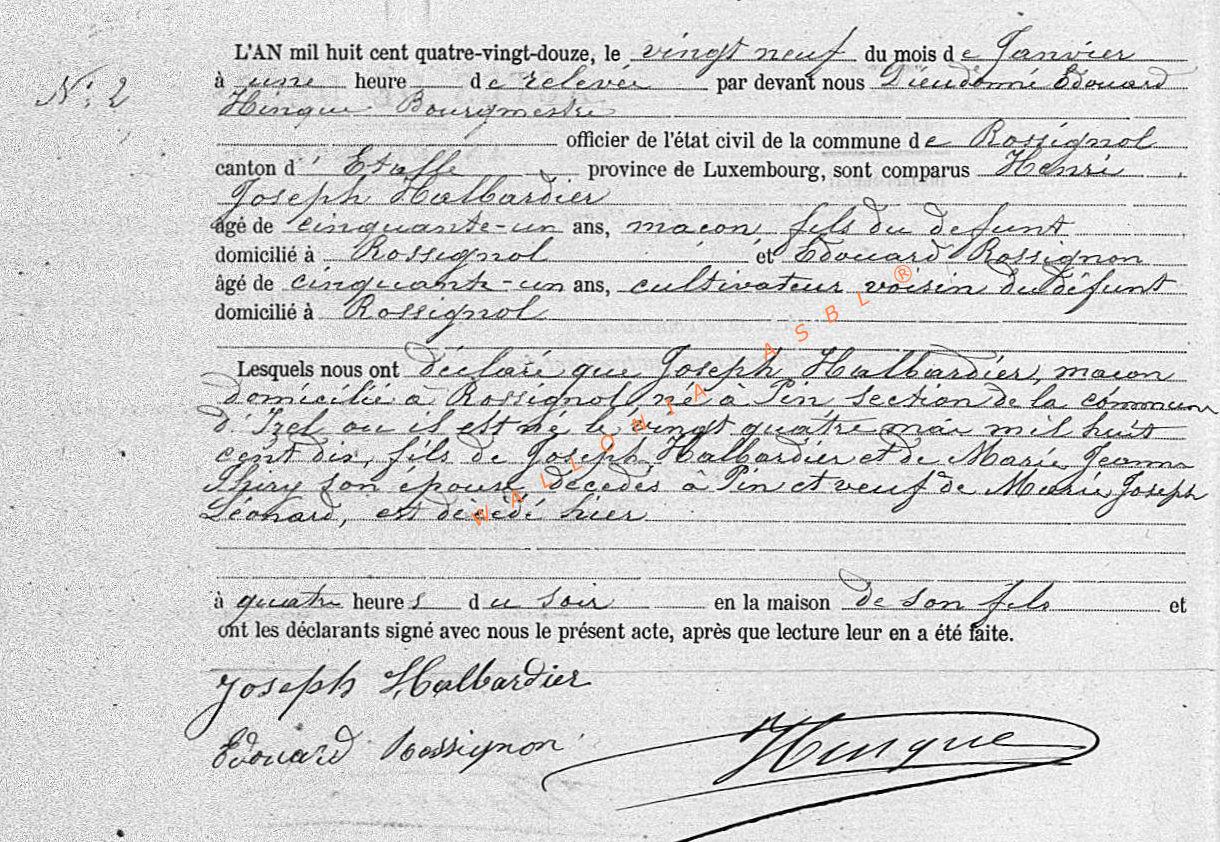 N° 2
L'AN mil huit cent quatre-vingt-douze, le vingt neuf du mois de Janvier
à une heure de relevée par devant nous Dieudonné Edouard
Hinque Bourgmestre
officier de l'état civil de la commune de Rossignol
canton d' Etalle province de Luxembourg, sont comparus Henri
Joseph Halbardier
âgé de cinquante-un ans, maçon, fils du défunt
domicilié à Rossignol et Edouard Rossignon
âgé de cinquante-un ans, cultivateur voisin du défunt
domicilié à Rossignol
Lesquels nous ont déclaré que Joseph Halbardier, maçon
domicilié à Rossignol né à Pin section de la commune
d'Izel ou il est né le vingt quatre mai mil huit
cent dix, fils de Joseph Halbardier et de Marie Jeanne
son épouse décédés à Pin et veuf de Marie Joseph
Léonard, est décédé hier
à quatre heures du soir en la maison de son fils et
ont les déclarants signé avec nous le présent acte, après que lecture leur en a été faite.
Joseph Halbardier
Edouard Rossignon
Hinque
WALLONIA ASBL ®